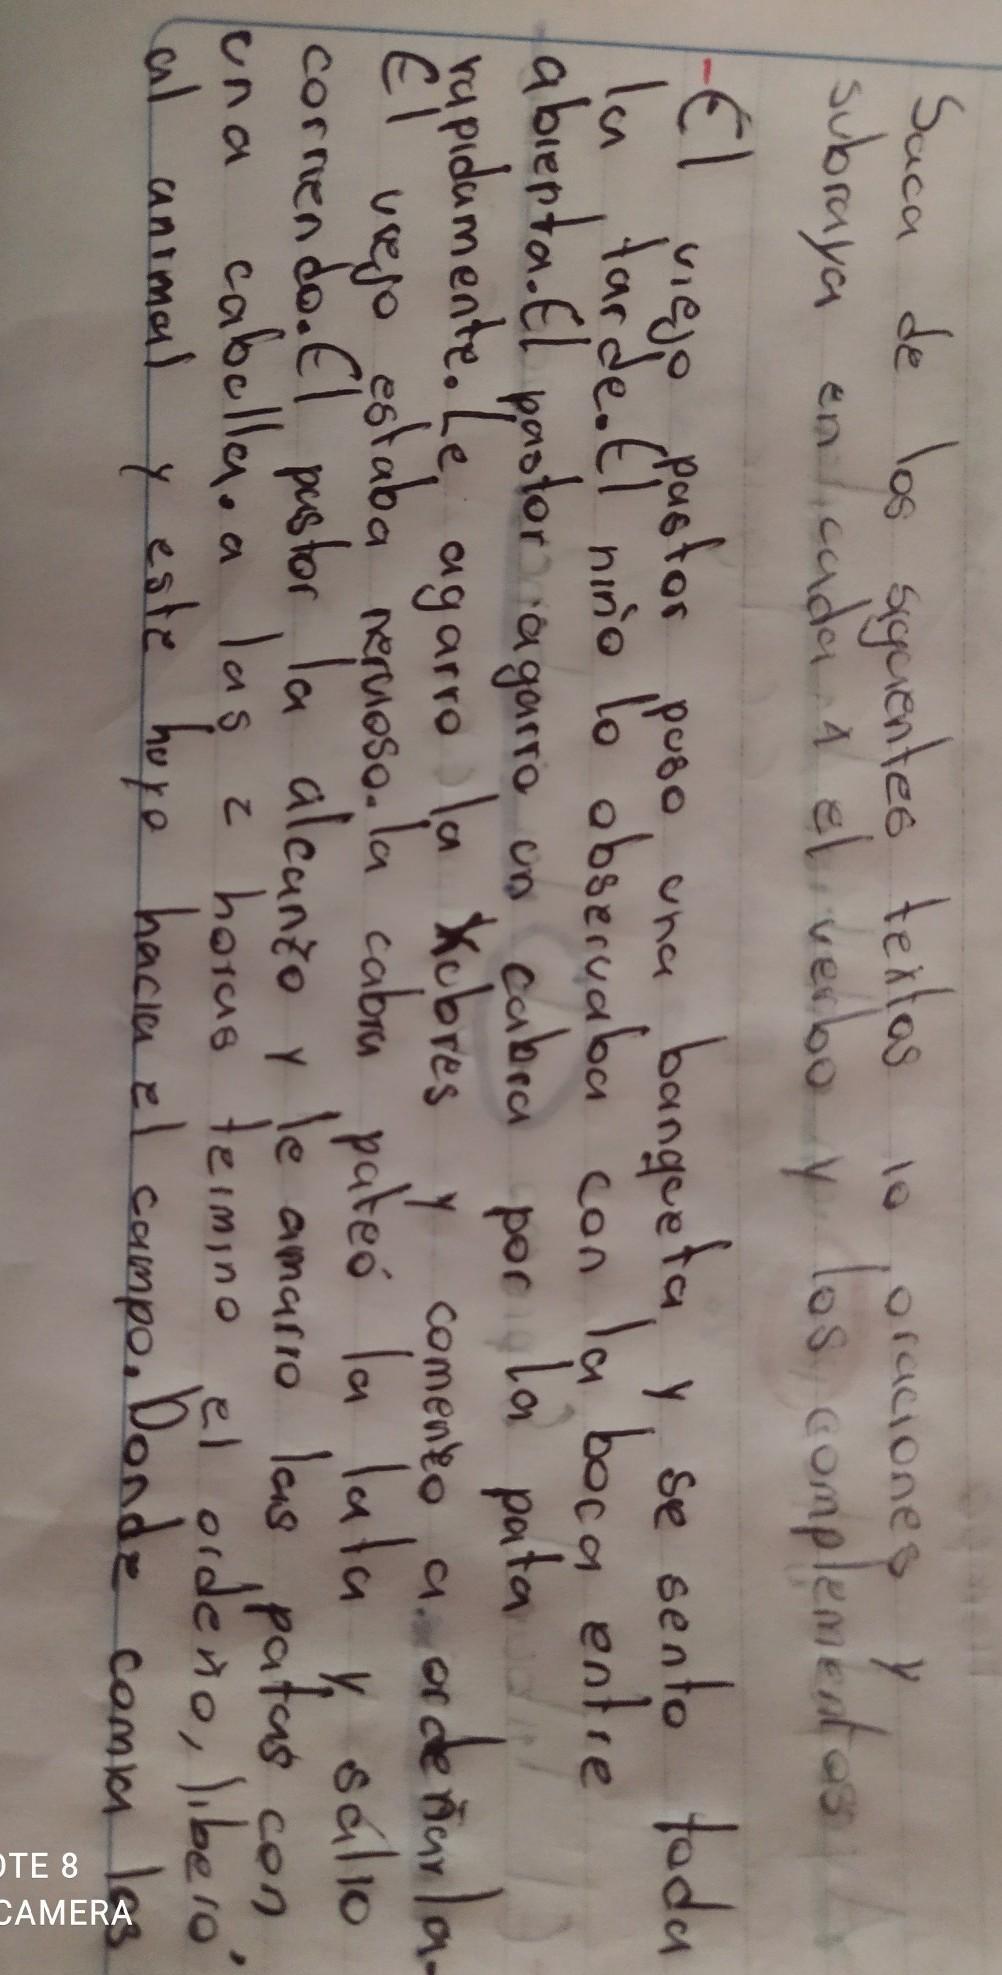 Saca de los siguientes textos 10 oraciones y
subraya en cada 1 el verbo y los complementos
-El viejo pastor puso una banqueta y se sento toda
la tarde. El niño lo observaba con la boca entre
abierta. El pastor agarro un cabra por la pata
rapidamente. Le agarro la ubres y comenzo a ordeñarla.
El viejo estaba nervioso. la cabra pateó la lata y salio
corriendo. El pastor la alcanzo y le amarro las patas con
una cabulla. a las 2 horas termino el ordeño, libero,
al animal y este huyo hacia el campo. Donde comia las
OTE 8
CAMERA